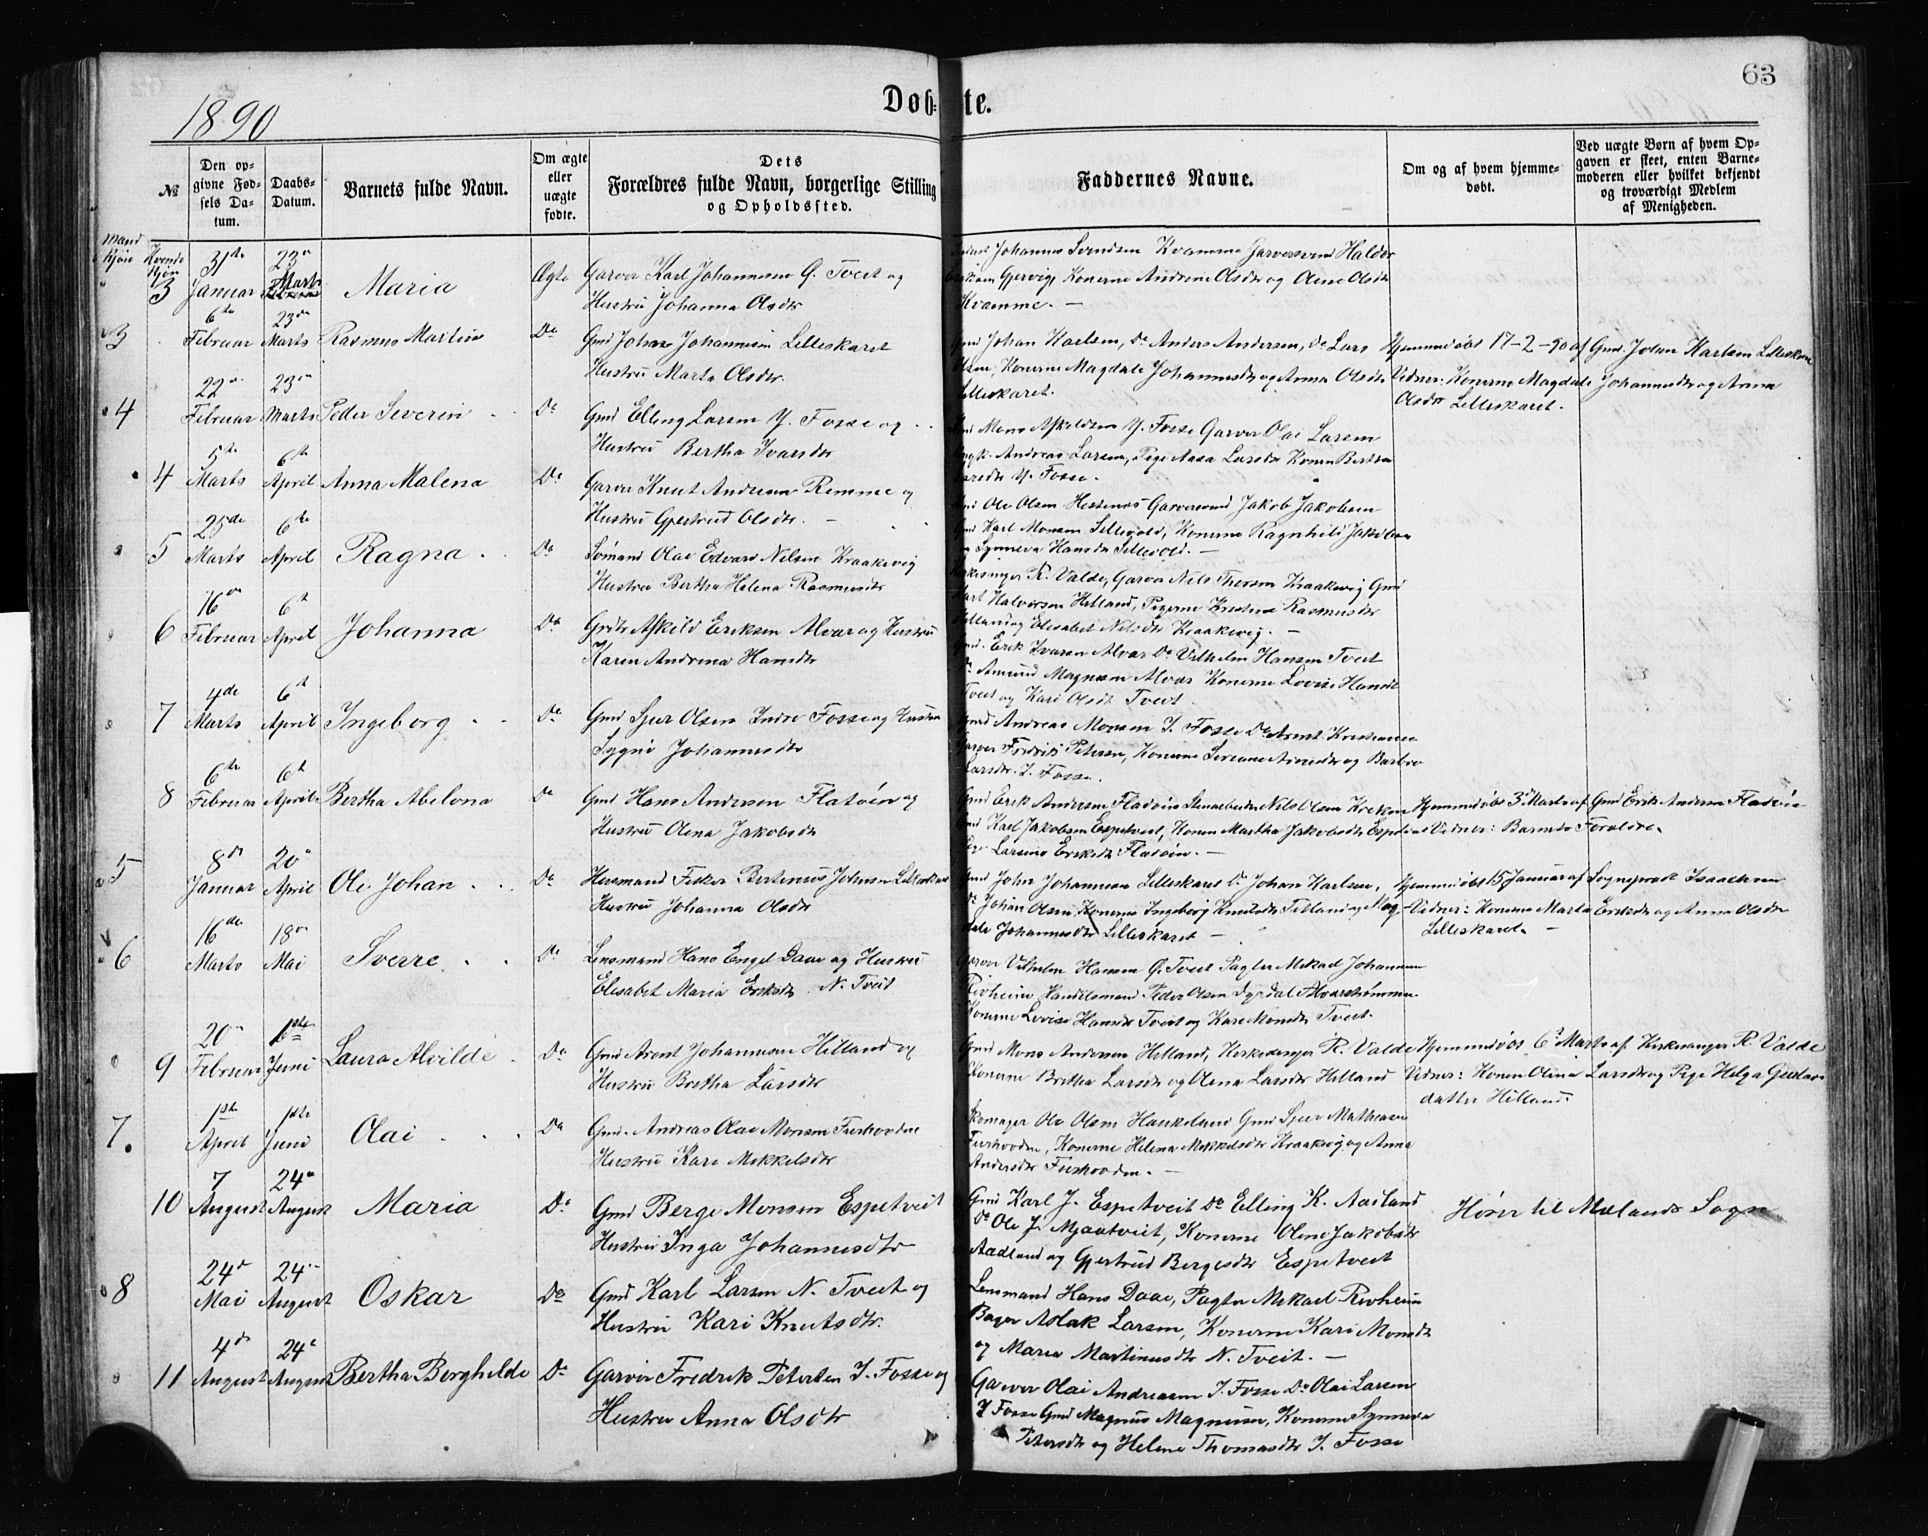 63
1890
Døb- te.
№
Den op-
givne Fød-
sels Da-
tum.
Daabs-
Datum.
Barnets fulde Navn.
Om ægte
eller
uægte
fødte.
Dets
Forældres fulde Navn, borgerlige Stilling
og Opholdssted.
Faddernes Navne.
Om og af hvem hjemme-
døbt.
Ved uægte Børn af hvem Op-
gaven er skeet, enten Barne-
moderen eller hvilket bekjendt
og troværdigt Medlem
af Menigheden.
Mand
Kjøn
Kvinde
Kjøn
3 31te Januar 23de Marts Maria Ægte Garver Karl Johannesen G. Tveit og
Hustru Johanna Olsdtr
Johannes Svendsen Kvamme Garversvend Haldor
Gjervig, Konerne Andrine Olsdtr og Oline Olsdtr
Kvamme. —
3 6te Februar 23de Marts Rasmus Martin Do Gmd Johan Johannesen Lilleskaret
Hustru Marta Olsdtr.
Gmd Johan Karlsen, Do Anders Andersen, Do Lars
Olsen, Konerne Magdale Johannesdtr og Anna Olsdtr
Lilleskaret.
Hjemmedøbt 17-2-90 af Gmd. Johan Karlsen Lilleskare
Vidner: Konerne Magdale Johannesdtr og Anna
Olsdtr Lilleskaret.
4 22de Februar 23de Marts Peder Severin Do Gmd Elling Larsen Y. Fosse og
Hustru Bertha Ivarsdtr
Gmd Mons Askeldsen Y. Fosse Garver Olai Larsen
Andreas Larsen, Pige Aasa Larsdtr Konen Bertha
Larsdtr Y. Fosse.
4 5te Marts 6te April Anna Malena Do Garver Knut Andersen Remme og
Hustru Gjertrud Olsdtr. —
Ole Olsen Hestenes Garversvend Jakob Jakobsen
Gmd Karl Monsen Sellevold, Konerne Ragnhild Jakobsen
og Synneva Hansdtr Sellevold. —
5 25de Marts 6te April Ragna Do Sømand Olai Edvard Nilsen Kraakevig
Hustru Bertha Helena Rasmusdtr
Kirkesanger R. Valde, Garver Nils Kraakevig Gmd
Halvorsen Hilland, Pigerne Kristine Rasmusdtr
Hilland og Elisabet Nilsdtr Kraakevig. —
6 16de Februar 6te April Johanna Do Grdbr Askild Eriksen Alvær og Hustru
Karen Andrina Hansdtr
Gmd. Erik Ivarsen Alvær Do Vilhelm Hansen Tveit
Do Amund Magnesen Alvær Konerne Lovise Hansdtr
Tveit og Kari Olsdtr Tveit.
7 4de Marts 6te April Ingeborg Do Gmd Sjur Olsen Indre Fosse og Hustru
Sygni Johannesdtr
Gmd Andreas Monsen I. Fosse Do Arent Kristiansen
Garver Fredrik Petersen, Konerne Arnesdtr og Barbro
Larsdtr I. Fosse.
8 6te Februar 6te April Bertha Abelona Do Gmd Hans Andersen Flatøen og
Hustru Olena Jakobsdtr
Gmd Erik Andersen Flatøen Nils Olsen
Gmd Karl Jakobsen Espetveit, Konen Martha Jakobsdtr
Pige Larsine Eriksdtr Flatøen. —
Hjemmedøbt 3de Marts af Gmd Erik Andersen Flatøen
Vidner: Barnets Forældre.
5 8de Januar 20de April Ole Johan Do Husmand Fisker Bertinius Johnsen Lilleskaret
Hustru Johanna Olsdtr
Gmd John Johannesen Lilleskaret Do Johan Karlsen,
Do Johan Olsen, Konerne Ingeborg Knutsdtr Titland og Mag-
dale Johannesdtr Lilleskaret —
Hjemmedøbt 15 Januar af Sogneprest Isaachsen
Vidner: Konerne Marta Eriksdtr og Anna Olsdtr
Lilleskaret. —
6 16de Marts 18de Mai Sverre Do Lensmand Hans Engel Daae og Hustru
Elisabet Maria Eriksdtr N. Tveit
Garver Vilhelm Hansen G. Tveit Pagter Mikael Johannesen
Rivheim Handelsmand Peder Olsen Dyrdal Alverstrømmen
Konerne Lovise Hansdtr Tveit og Kari Monsdtr Tveit.
9 20de Februar 1ste Juni Laura Alvilde Do Gmd Arent Johannesen Hilland og
Hustru Bertha Larsdtr
Gmd Mons Andersen Hilland, Kirkesanger R. Valde
Konerne Britha Larsdtr og Olena Larsdtr Hilland
Hjemmedøbt 6te Marts af Kirkesanger R. Valde
Vidner: Konen Olina Larsdtr og Pige Helga Gustavs
datter Hilland.
7. 1ste April 1ste Juni Olai Do Gmd. Andreas Olai Monsen Furhovden
Hustru Kari Mikkelsdtr
Skomager Ole Olsen Haukeland Gmd Sjur Mathiesen
Furhovden, Konerne Helena Mikkelsdtr Kraakevig og Anna
Andersdtr Furhovden. —
10 7 August 24de August Maria Do Gmd Berge Monsen Espetveit
Hustru Inga Johannesdtr
Gmd Karl J. Espetveit Do Elling K. Aasland
Do Ole J. Mjaatveit, Konerne Oline Jakobsdtr
Aadland og Gjertrud Bergesdtr Espetveit
Hører til Mælands Sogn
8 24de Mai 24de August Oskar Do Gmd Karl Larsen N. Tveit og
Hustru Kari Knutsdtr.
Lensmand Hans Daae, Pagter Mikael Rivheim
Bager Aslak Larsen, Konerne Kari Monsdtr
og Maria Martinusdtr N. Tveit. —
11 4de August 24de August Bertha Borghilde Do Garver Fredrik Petersen I. Fosse og
Hustru Anna Olsdtr
Garver Olai Andreasen I. Fosse Do Olai Larsen
I Fosse Gmd Magnus Magnusen, Konerne Synneva
Petersdtr og Helene Thomasdtr I. Fosse